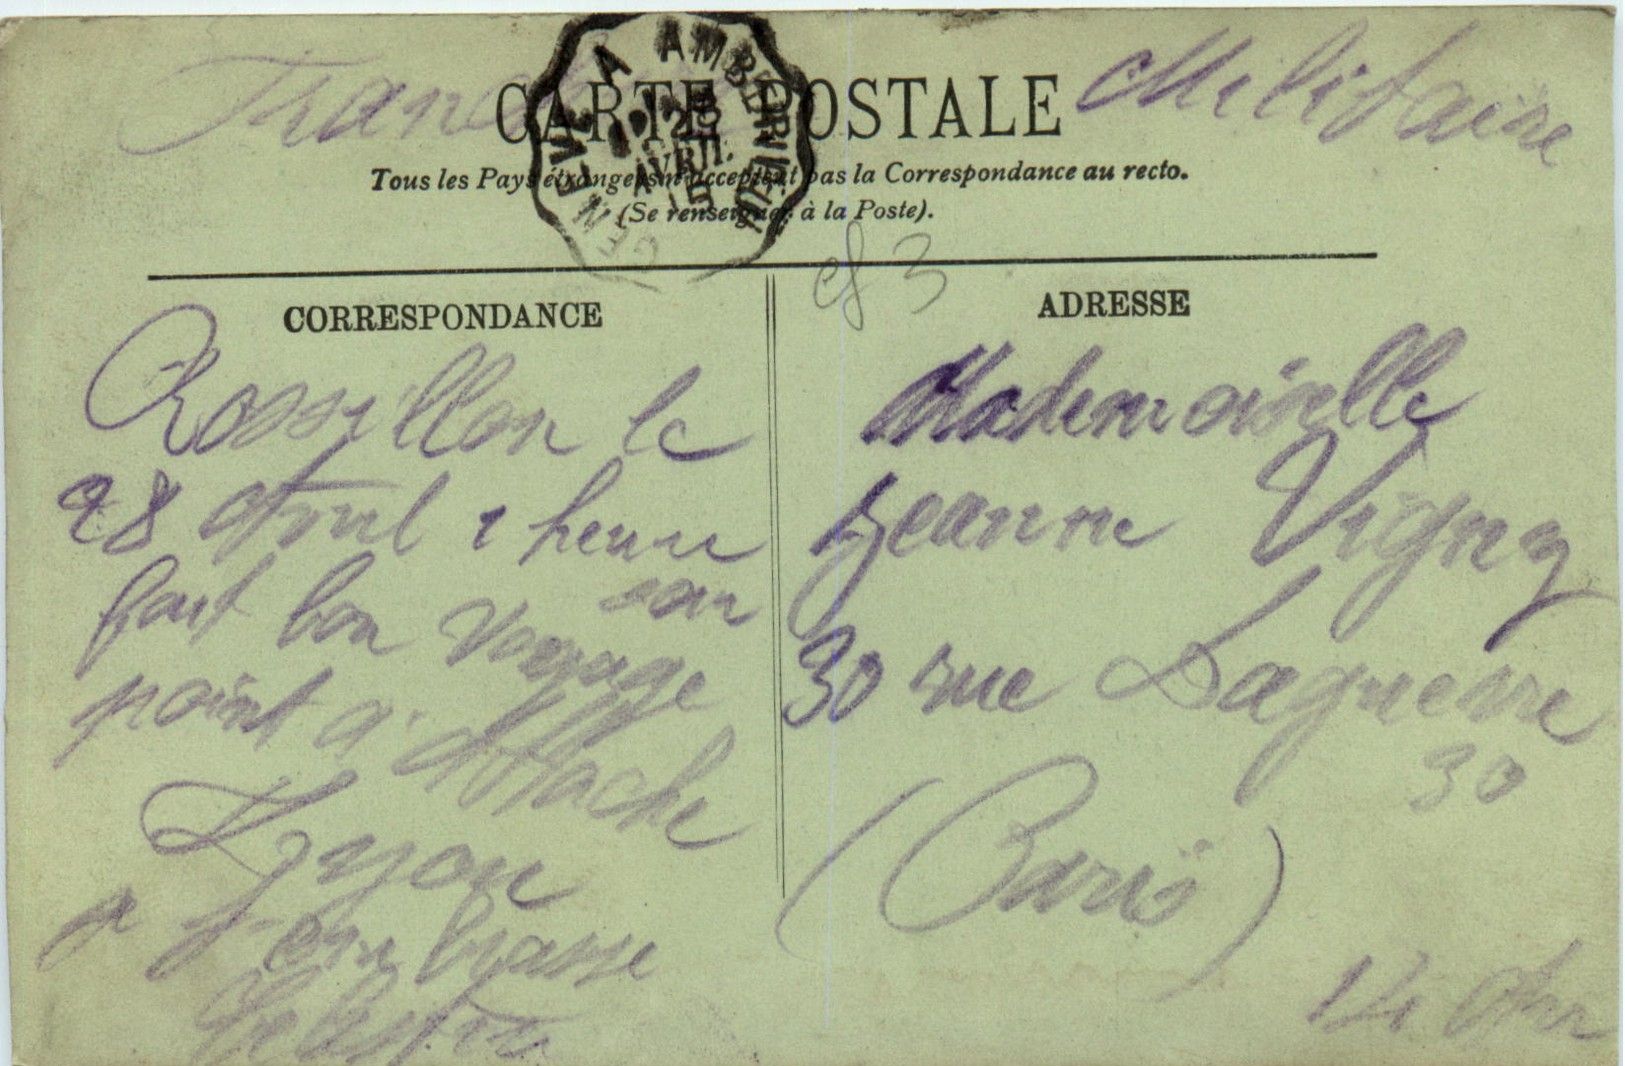 Franchise Militaire
CARTE POSTALE
Tous les Pays étrangers n'acceptent pas la Correspondance au recto.
(Se renseigner à la Poste).
GENEVE A AMBERIEU
28
AVRIL
CORRESPONDANCE
ADRESSE
Rossillon le
28 Avril 1 heure
fait bon voyage
point d'Attache
Lyon
je t'embrasse
Mademoiselle
Jeanne Vigny
30 rue Daguerre
30
(Paris)
14 Arr